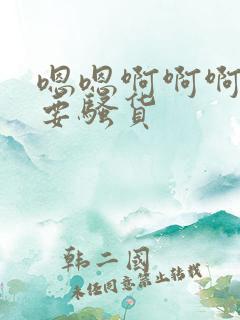 嗯嗯啊啊啊
要骚货
韩二国
未经同意禁止转载